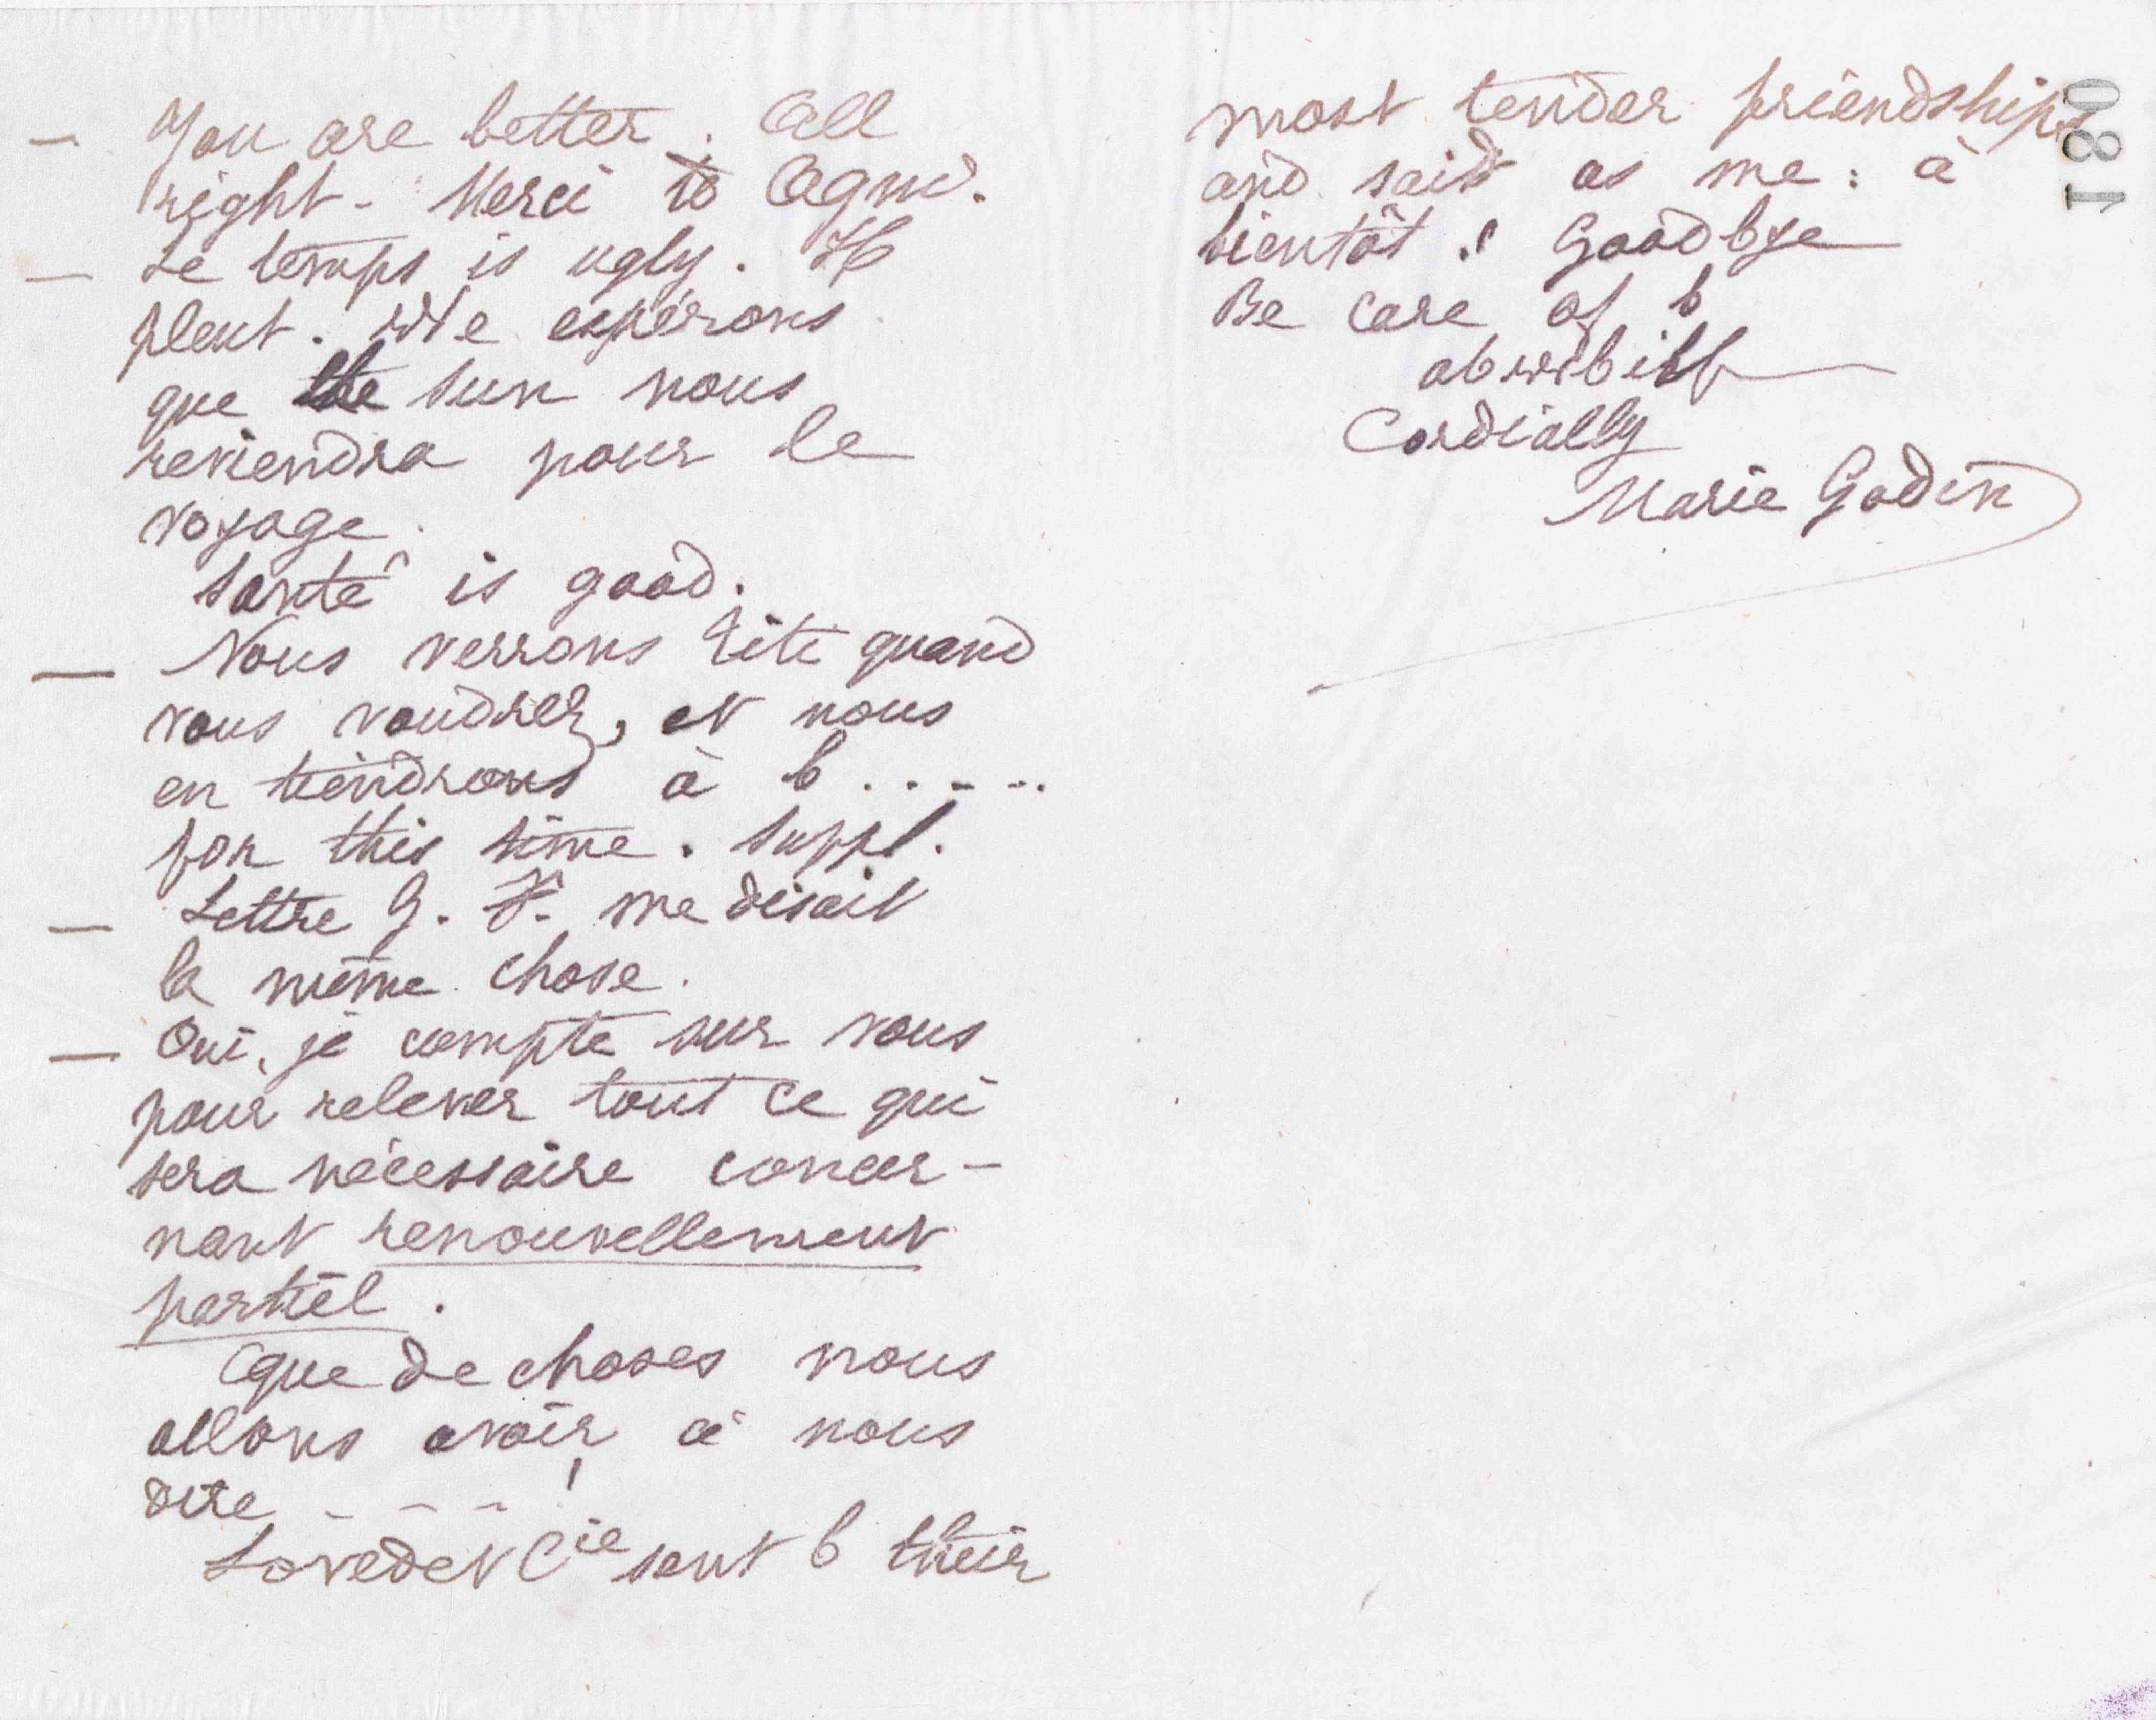 — You are better. All
right - Merci to Agnd.
— Le temps is ugly. Il
pleut. We espérons
que the sun nous
reviendra pour le
voyage.
Santé is good.
— Nous verrons Titi quand
vous voudrez, et nous
en tiendrons à b.....
for this time. Suppl.
— Lettre G. F. me disait
la même chose.
— Oui, je compte sur vous
pour relever tout ce qui
sera nécessaire concer-
nant renouvellement
partiel.
Que de choses nous
allons avoir à nous
dire - - - !
Lovedet Cie sent b their
most tender friendships
and said as me : à
bientôt ! Goodbye
Be care of b
Cordially
Marie Godin
180